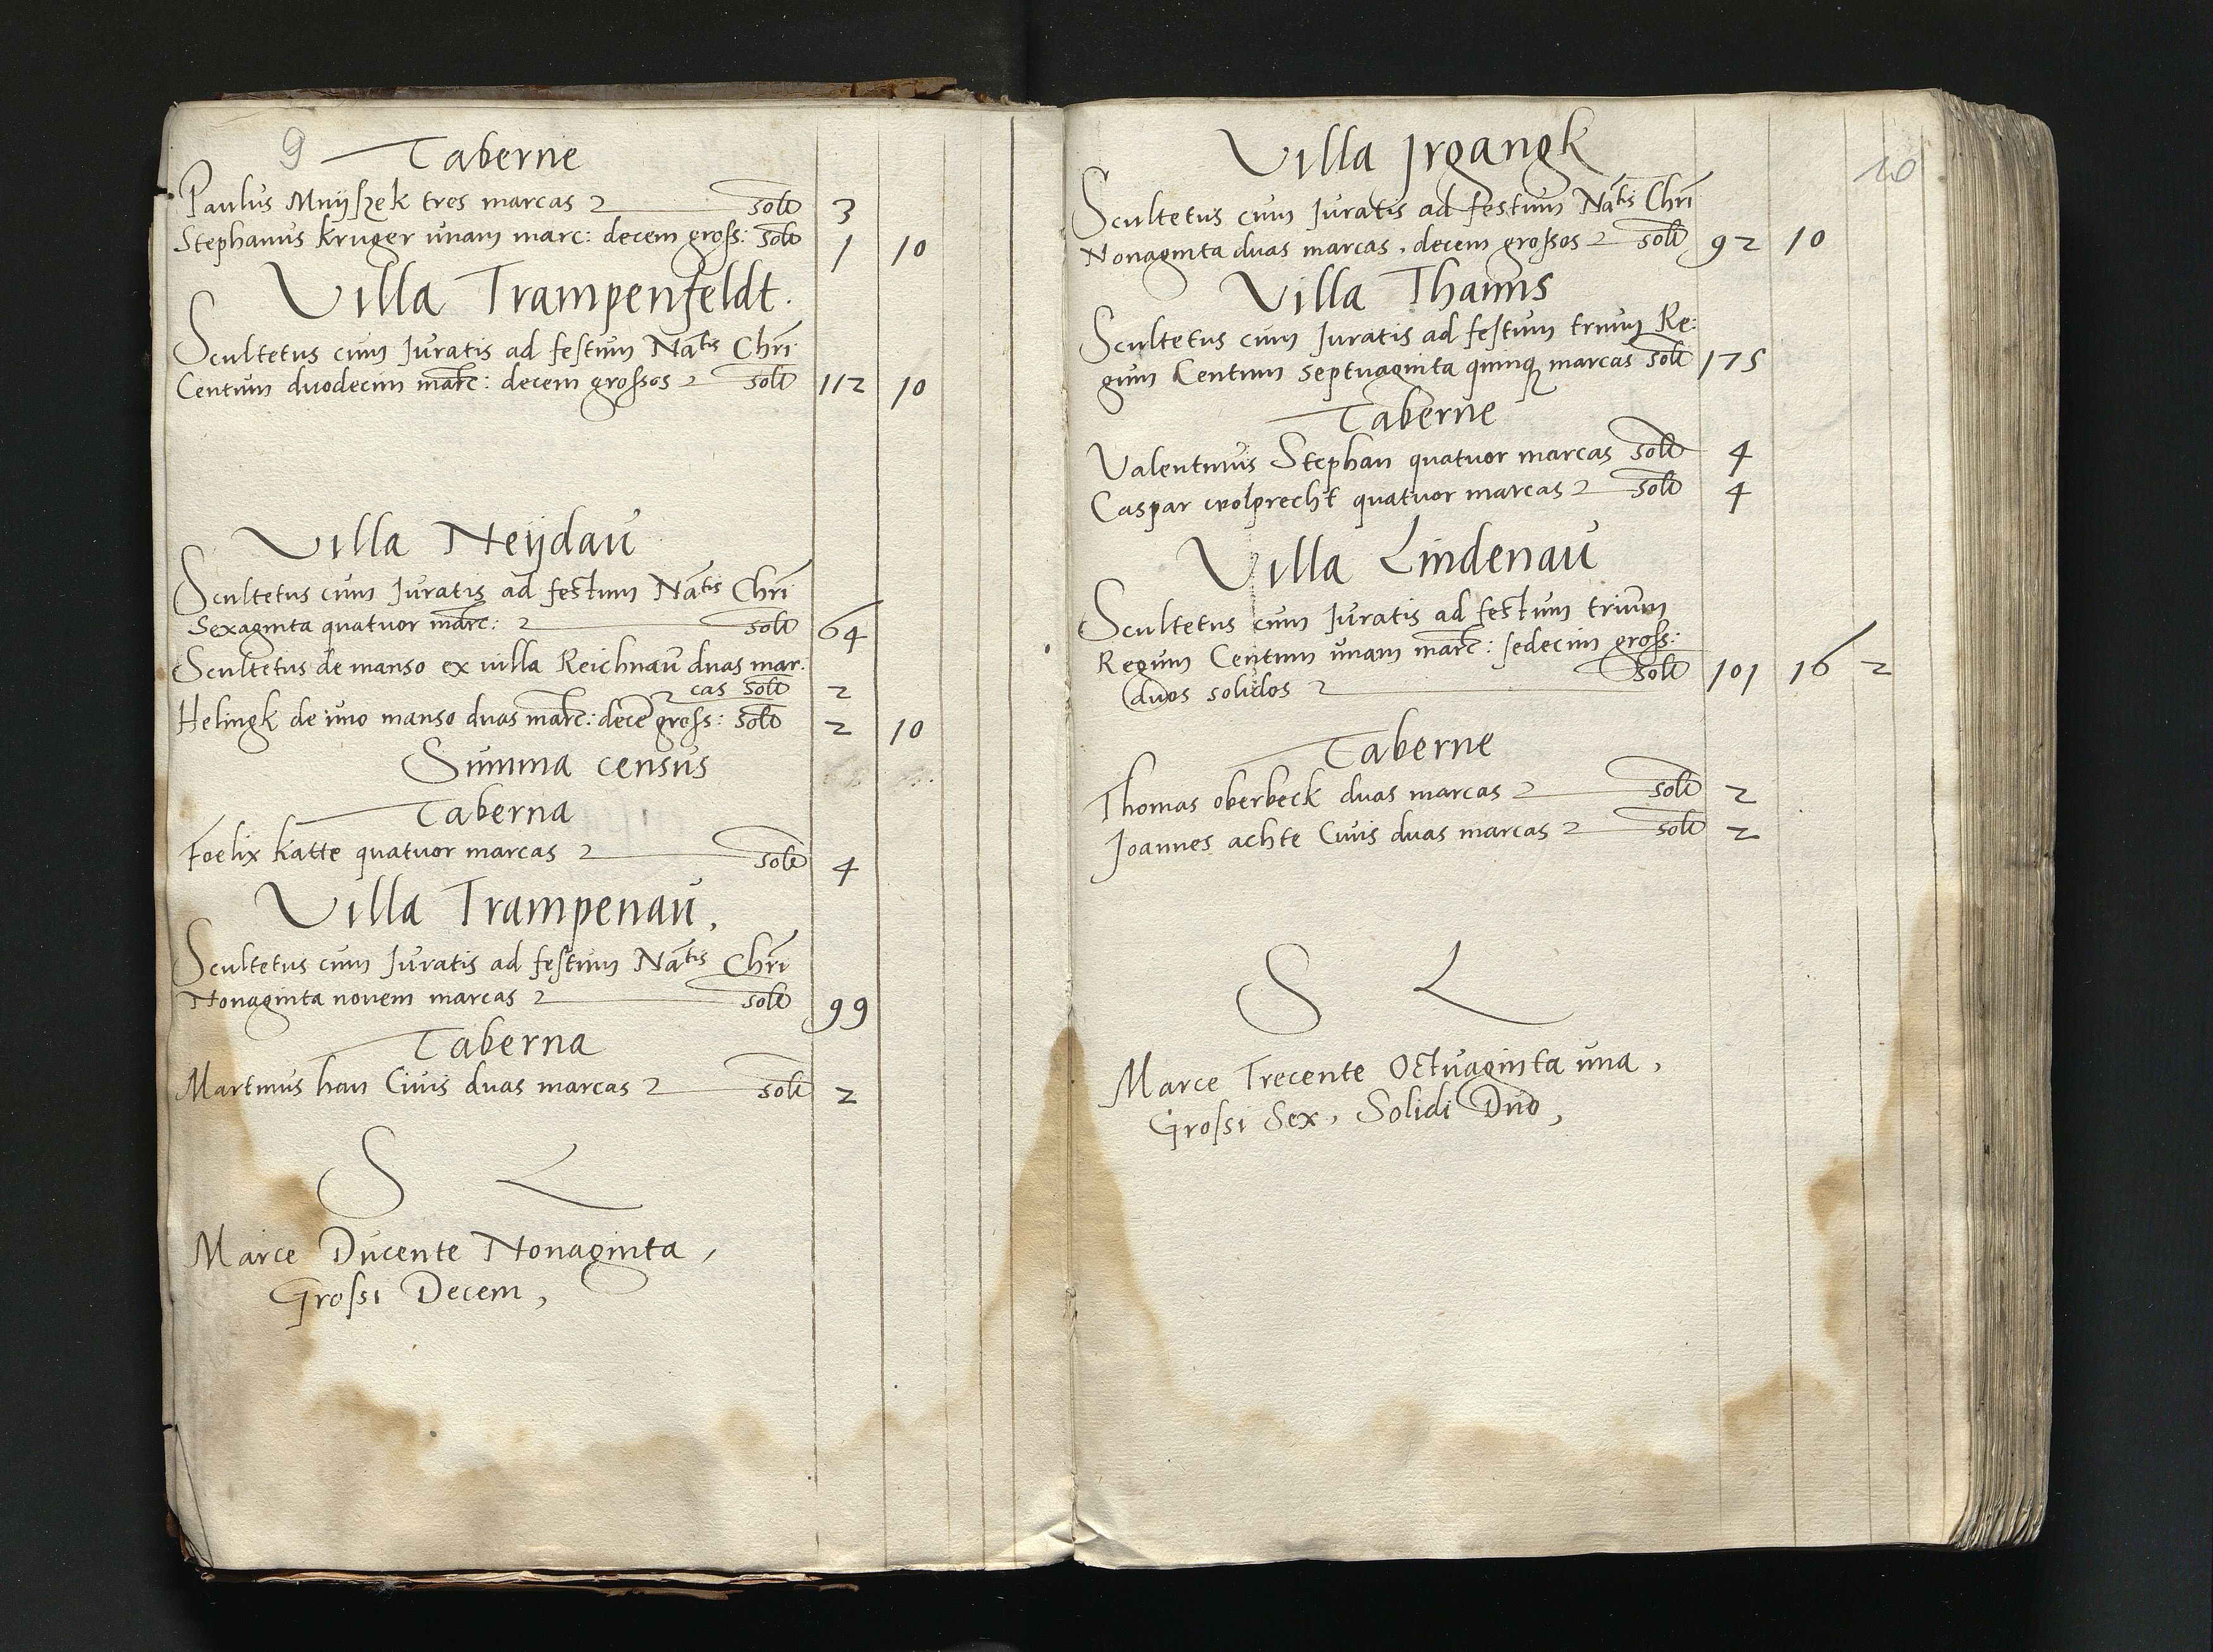 9
Taberne
Paulus Mnyszek tres marcas 2 solt 3
Stephanus Kruger unam marc: decem gross: solt 1 10
Villa Trampenfeldt.
Scultetus cum Juratis ad festum Natis Chri
Centum duodecim marc: decem grossos 2 solt 112 10
Villa Neydau
Scultetus cum Juratis ad festum Natis Chri
Sexaginta quatuor marc: 2 solt 64
Scultetus de manso ex villa Reichnau duas mar.
2 cas solt 2
Helingk de uno manso duas marc: dece gross: solt 2 10
Summa census
Taberna
Foelix Katte quatuor marcas 2 solt 4
Villa Trampenau,
Scultetus cum Juratis ad festum Natis Chri
Nonaginta novem marcas 2 solt 99
Taberna
Martinus han Civis duas marcas 2 solt 2
S L
Marce Ducente Nonaginta,
Grossi Decem,
10
Villa Jrgangk
Scultetus cum Juratis ad festum Natis Chri
Nonaginta duas marcas, decem grossos 2 solt 92 10
Villa Thanns
Scultetus cum Juratis ad festum trium Re:
gum Centum septuaginta quinq marcas solt 175
Taberne
Valentinus Stephan quatuor marcas solt 4
Caspar wolprecht quatuor marcas 2 solt 4
Villa Lindenau
Scultetus cum Juratis ad festum trium
Regum Centum unam marc: sedecim gross:
duos solidos 2 solt 101 16 2
Taberne
Thomas oberbeck duas marcas 2 solt 2
Joannes achte Civis duas marcas 2 solt 2
S L
Marce Trecente Octuaginta una,
Grossi Sex, Solidi Duo,